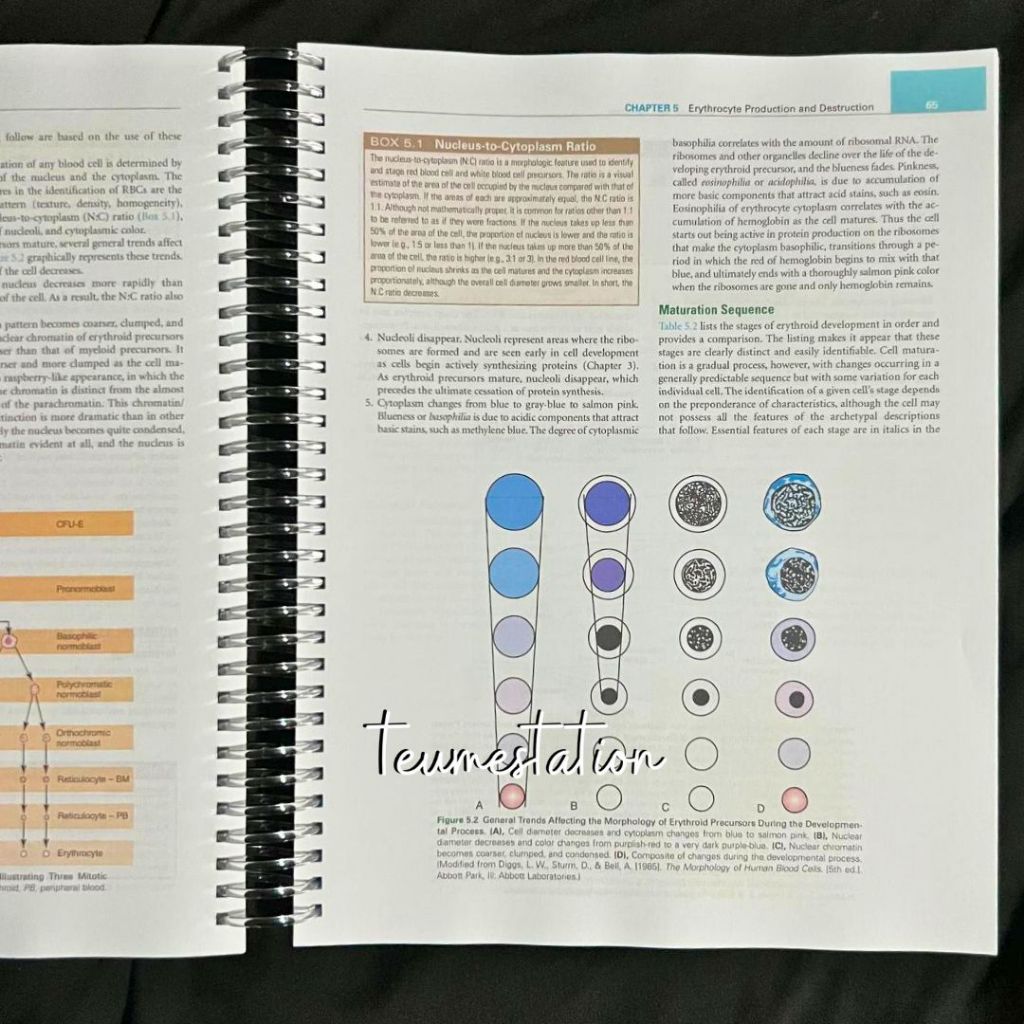 follow are based on the use of these
ation of any blood cell is determined by
of the nucleus and the cytoplasm. The
res in the identification of RBCs are the
attern (texture, density, homogeneity),
leus-to-cytoplasm (N:C) ratio (Box 5.1),
f nucleoli, and cytoplasmic color.
sors mature, several general trends affect
re 5.2 graphically represents these trends.
f the cell decreases.
nucleus decreases more rapidly than
of the cell. As a result, the N:C ratio also
pattern becomes coarser, clumped, and
clear chromatin of erythroid precursors
ser than that of myeloid precursors. It
rser and more clumped as the cell ma-
raspberry-like appearance, in which the
e chromatin is distinct from the almost
of the parachromatin. This chromatin/
tinction is more dramatic than in other
ly the nucleus becomes quite condensed,
matin evident at all, and the nucleus is
CFU-E
Pronormoblast
Basophilic
normoblast
Polychromatic
normoblast
Orthochromic
normoblast
Reticulocyte – BM
Reticulocyte – PB
Erythrocyte
Illustrating Three Mitotic
hroid, PB, peripheral blood.
CHAPTER 5 Erythrocyte Production and Destruction 65
BOX 5.1 Nucleus-to-Cytoplasm Ratio
The nucleus-to-cytoplasm (N:C) ratio is a morphologic feature used to identify
and stage red blood cell and white blood cell precursors. The ratio is a visual
estimate of the area of the cell occupied by the nucleus compared with that of
the cytoplasm. If the areas of each are approximately equal, the N:C ratio is
1:1. Although not mathematically proper, it is common for ratios other than 1:1
to be referred to as if they were fractions. If the nucleus takes up less than
50% of the area of the cell, the proportion of nucleus is lower and the ratio is
lower (e.g., 1:5 or less than 1). If the nucleus takes up more than 50% of the
area of the cell, the ratio is higher (e.g., 3:1 or 3). In the red blood cell line, the
proportion of nucleus shrinks as the cell matures and the cytoplasm increases
proportionately, although the overall cell diameter grows smaller. In short, the
N:C ratio decreases.
4. Nucleoli disappear. Nucleoli represent areas where the ribo-
somes are formed and are seen early in cell development
as cells begin actively synthesizing proteins (Chapter 3).
As erythroid precursors mature, nucleoli disappear, which
precedes the ultimate cessation of protein synthesis.
5. Cytoplasm changes from blue to gray-blue to salmon pink.
Blueness or basophilia is due to acidic components that attract
basic stains, such as methylene blue. The degree of cytoplasmic
basophilia correlates with the amount of ribosomal RNA. The
ribosomes and other organelles decline over the life of the de-
veloping erythroid precursor, and the blueness fades. Pinkness,
called eosinophilia or acidophilia, is due to accumulation of
more basic components that attract acid stains, such as eosin.
Eosinophilia of erythrocyte cytoplasm correlates with the ac-
cumulation of hemoglobin as the cell matures. Thus the cell
starts out being active in protein production on the ribosomes
that make the cytoplasm basophilic, transitions through a pe-
riod in which the red of hemoglobin begins to mix with that
blue, and ultimately ends with a thoroughly salmon pink color
when the ribosomes are gone and only hemoglobin remains.
Maturation Sequence
Table 5.2 lists the stages of erythroid development in order and
provides a comparison. The listing makes it appear that these
stages are clearly distinct and easily identifiable. Cell matura-
tion is a gradual process, however, with changes occurring in a
generally predictable sequence but with some variation for each
individual cell. The identification of a given cell's stage depends
on the preponderance of characteristics, although the cell may
not possess all the features of the archetypal descriptions
that follow. Essential features of each stage are in italics in the
teumestation
A B C D
Figure 5.2 General Trends Affecting the Morphology of Erythroid Precursors During the Developmen-
tal Process. (A), Cell diameter decreases and cytoplasm changes from blue to salmon pink. (B), Nuclear
diameter decreases and color changes from purplish-red to a very dark purple-blue. (C), Nuclear chromatin
becomes coarser, clumped, and condensed. (D), Composite of changes during the developmental process.
(Modified from Diggs, L. W., Sturm, D., & Bell, A. [1985]. The Morphology of Human Blood Cells. [5th ed.].
Abbott Park, Ill: Abbott Laboratories.)